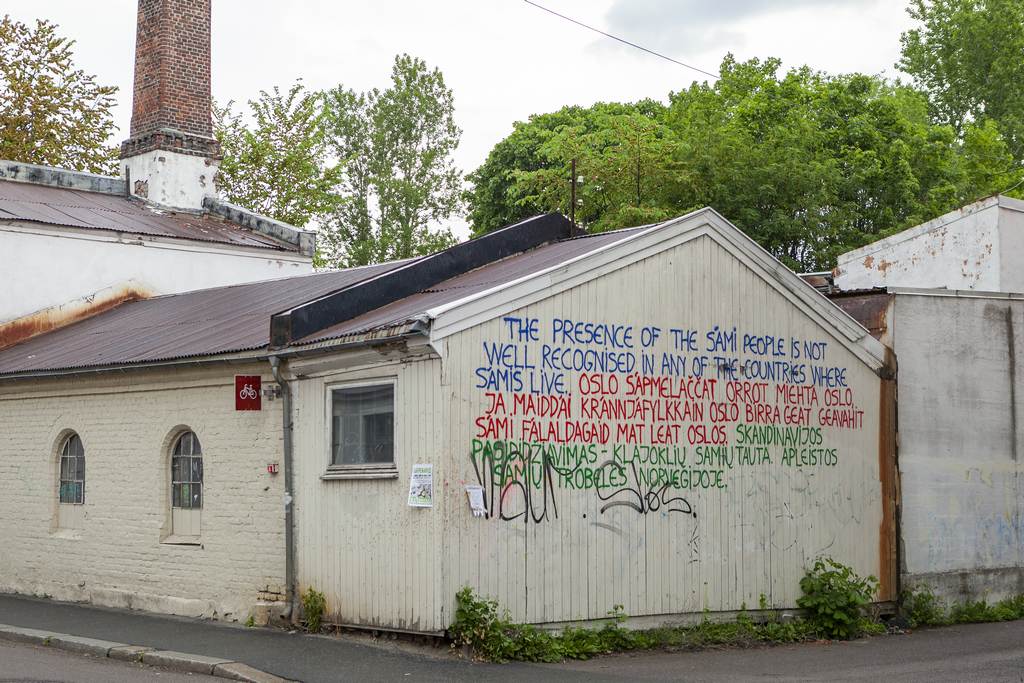 THE PRESENCE OF THE SÁMI PEOPLE IS NOT
WELL RECOGNISED IN ANY OF THE COUNTRIES WHERE
SÁMIS LIVE. OSLO SÁPMELAČČAT ORROT MIEHTA OSLO,
JA MAIDDAI KRANNJÁFYLKKAIN OSLO BIRRA GEAT GEAVAHIT
SÁMI FÁLALDAGAID MAT LEAT OSLOS. SKANDINAVIJOS
PASIDIDŽIAVIMAS - KLAJOKLIŲ SAMIŲ TAUTA APLEISTOS
SAMIŲ TROBELĖS NORVEGIJOJE.